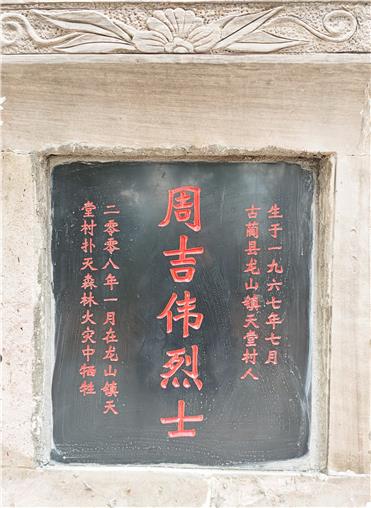 生于一九六七年七月
古蔺县龙山镇天堂村人
周吉伟烈士
二零零八年一月在龙山镇天
堂村扑灭森林火灾中牺牲